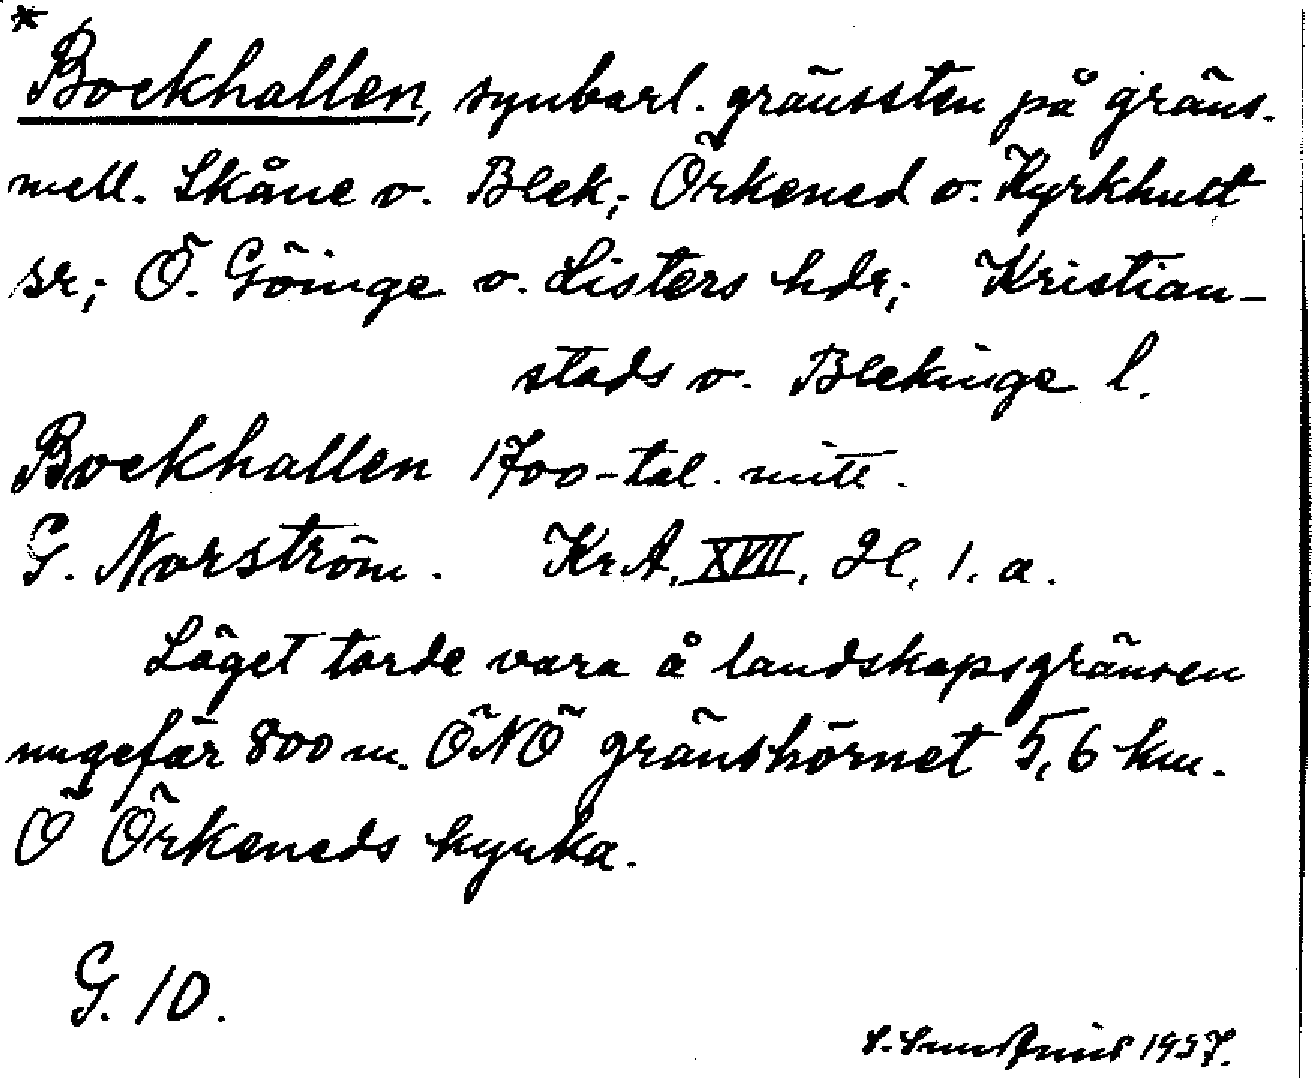 *
Bockhallen, synbarl. gränssten på gräns.
mell. Skåne o. Blek; Örkened o. Kyrkhult
sr; Ö. Göinge o. Listers hdr; Kristian-
stads o. Blekinge l.
Bockhallen 1700-tal. mitt.
G. Norström. Kr.A. XVII, 2l, 1. a.
Läget torde vara å landskapsgränsen
ungefär 800 m. ÖNÖ gränshörnet 5,6 km.
Ö Örkeneds kyrka.
G. 10.
1937.